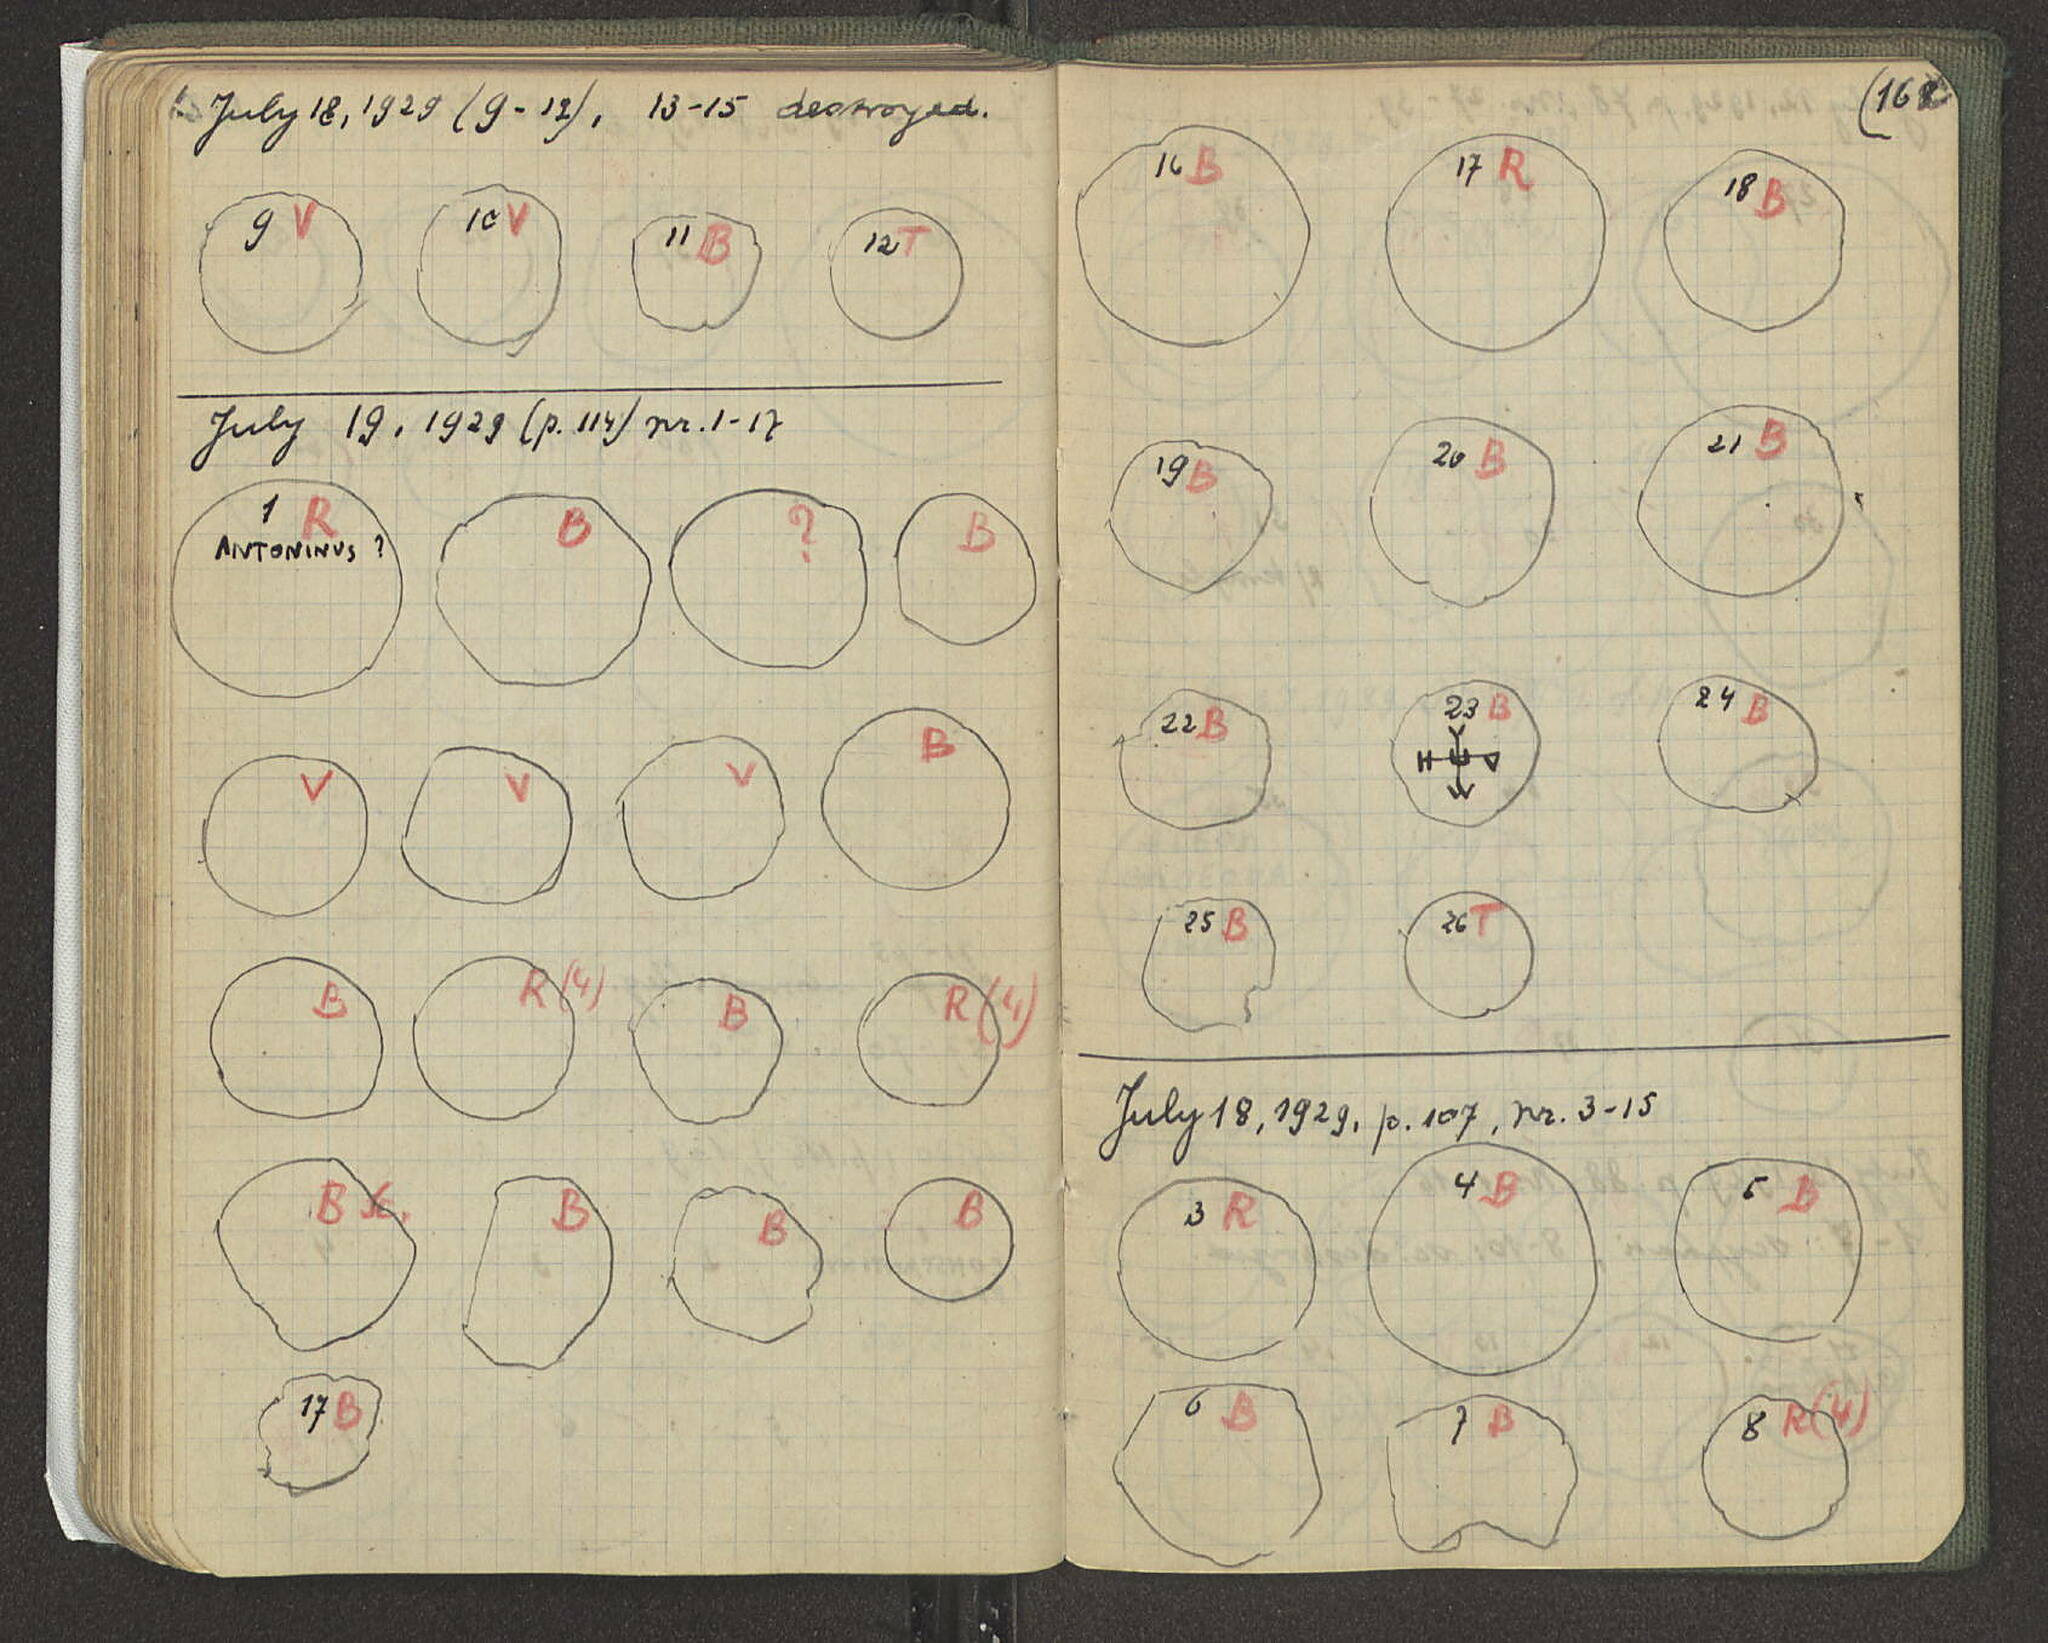 July 18, 1929 (9-12), 13-15 destroyed.
9 V 10 V 11 B 12 T
July 19, 1929 (p. 114) nr. 1-17
1 R B ? B
ANTONINUS ?
V V V B
B R (4) B R (4)
B B B B
17 B
16 B 17 R 18 B
19 B 20 B 21 B
22 B 23 B 24 B
25 B 26 T
July 18, 1929, p. 107, nr. 3-15
3 R 4 B 5 B
6 B 7 B 8 R (4)